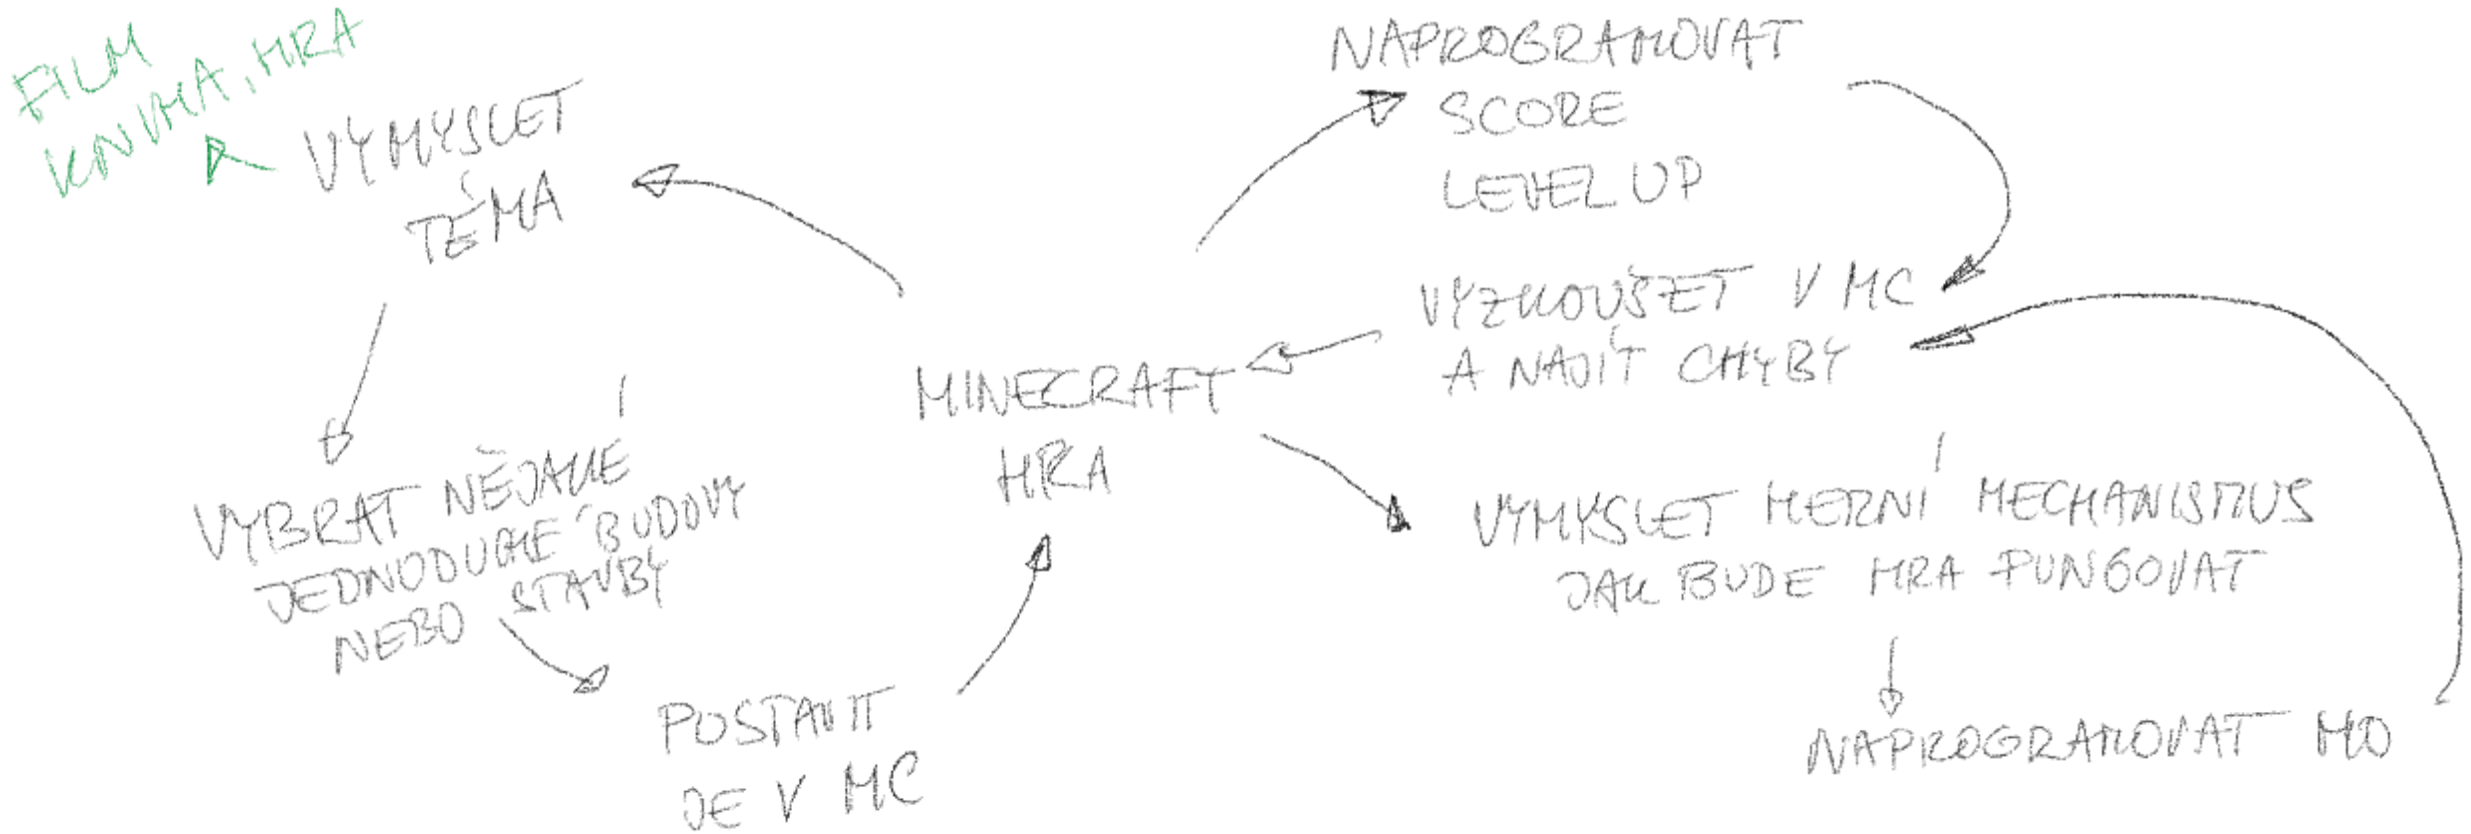 FILM
KNIHA, HRA
VYMYSLET
TÉMA
VYBRAT NĚJAKÉ
JEDNODUCHÉ BUDOVY
NEBO STAVBY
POSTAVIT
JE V MC
MINECRAFT
HRA
NAPROGRAMOVAT
SCORE
LEVEL UP
VYZKOUŠET V MC
A NAJÍT CHYBY
VYMYSLET HERNÍ MECHANISMUS
JAK BUDE HRA FUNGOVAT
NAPROGRAMOVAT HO